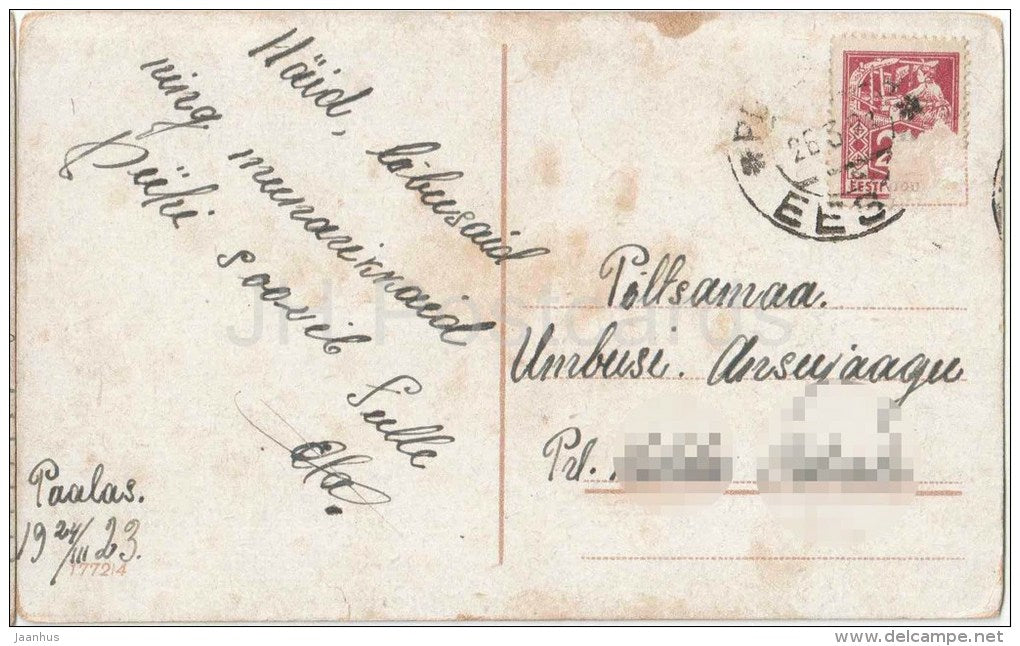 Häid, lõbusaid
ning munarikkaid
Pühi soovib Sulle
Paalas.
19 24/III 23.
17724
EESTI
EES
Põltsamaa.
Umbusi. Ansujaagu
Prl.
JH Postcards
Jaanhus
www.delcampe.net